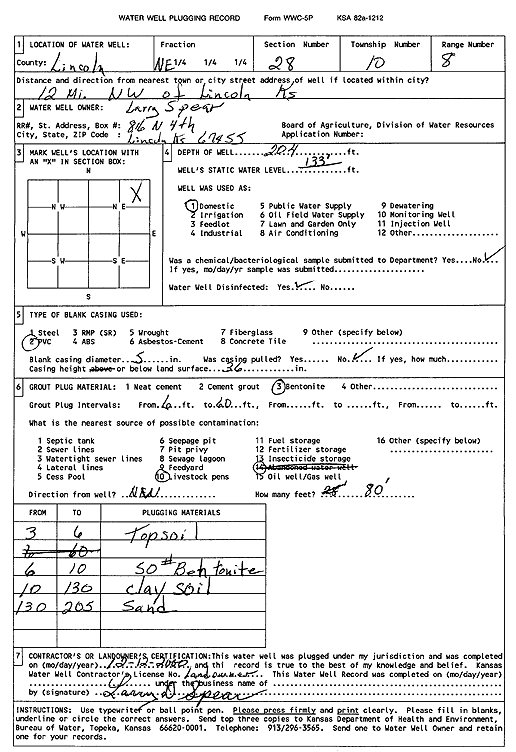 WATER WELL PLUGGING RECORD Form WWC-5P KSA 82a-1212
1 LOCATION OF WATER WELL: Fraction Section Number Township Number Range Number
County: Lincoln NE 1/4 1/4 1/4 28 10 8
Distance and direction from nearest town or city street address of well if located within city?
12 Mi. NW of Lincoln Ks
2 WATER WELL OWNER: Larry Spear
RR#, St. Address, Box #: 816 N 4th Board of Agriculture, Division of Water Resources
City, State, ZIP Code : Lincoln Ks 67455 Application Number:
3 MARK WELL'S LOCATION WITH AN "X" IN SECTION BOX:
N
N W N E X
W E
S W S E
S
4 DEPTH OF WELL 204 ft.
WELL'S STATIC WATER LEVEL 133' ft.
WELL WAS USED AS:
1 Domestic 5 Public Water Supply 9 Dewatering
2 Irrigation 6 Oil Field Water Supply 10 Monitoring Well
3 Feedlot 7 Lawn and Garden Only 11 Injection Well
4 Industrial 8 Air Conditioning 12 Other
Was a chemical/bacteriological sample submitted to Department? Yes....No..✓
If yes, mo/day/yr sample was submitted
Water Well Disinfected: Yes ✓ No
5 TYPE OF BLANK CASING USED:
1 Steel 3 RMP (SR) 5 Wrought 7 Fiberglass 9 Other (specify below)
2 PVC 4 ABS 6 Asbestos-Cement 8 Concrete Tile
Blank casing diameter 5 in. Was casing pulled? Yes No ✓ If yes, how much
Casing height above or below land surface 36 in.
6 GROUT PLUG MATERIAL: 1 Neat cement 2 Cement grout 3 Bentonite 4 Other
Grout Plug Intervals: From 6 ft. to 60 ft., From ft. to ft., From to ft.
What is the nearest source of possible contamination:
1 Septic tank 6 Seepage pit 11 Fuel storage 16 Other (specify below)
2 Sewer lines 7 Pit privy 12 Fertilizer storage
3 Watertight sewer lines 8 Sewage lagoon 13 Insecticide storage
4 Lateral lines 9 Feedyard 14 Abandoned water well
5 Cess Pool 10 Livestock pens 15 Oil well/Gas well
Direction from well? How many feet? 80'
FROM TO PLUGGING MATERIALS
3 6 Topsoil
60
6 10 50# Bentonite
10 130 clay soil
130 205 Sand
7 CONTRACTOR'S OR LANDOWNER'S CERTIFICATION: This water well was plugged under my jurisdiction and was completed
on (mo/day/year) 12-12-2000 and thi record is true to the best of my knowledge and belief. Kansas
Water Well Contractor's License No. Landowner This Water Well Record was completed on (mo/day/
year) under the business name of
by (signature) Larry D Spear
INSTRUCTIONS: Use typewriter or ball point pen. Please press firmly and print clearly. Please fill in blanks,
underline or circle the correct answers. Send top three copies to Kansas Department of Health and Environment,
Bureau of Water, Topeka, Kansas 66620-0001. Telephone: 913/296-3565. Send one to Water Well Owner and retain
one for your records.